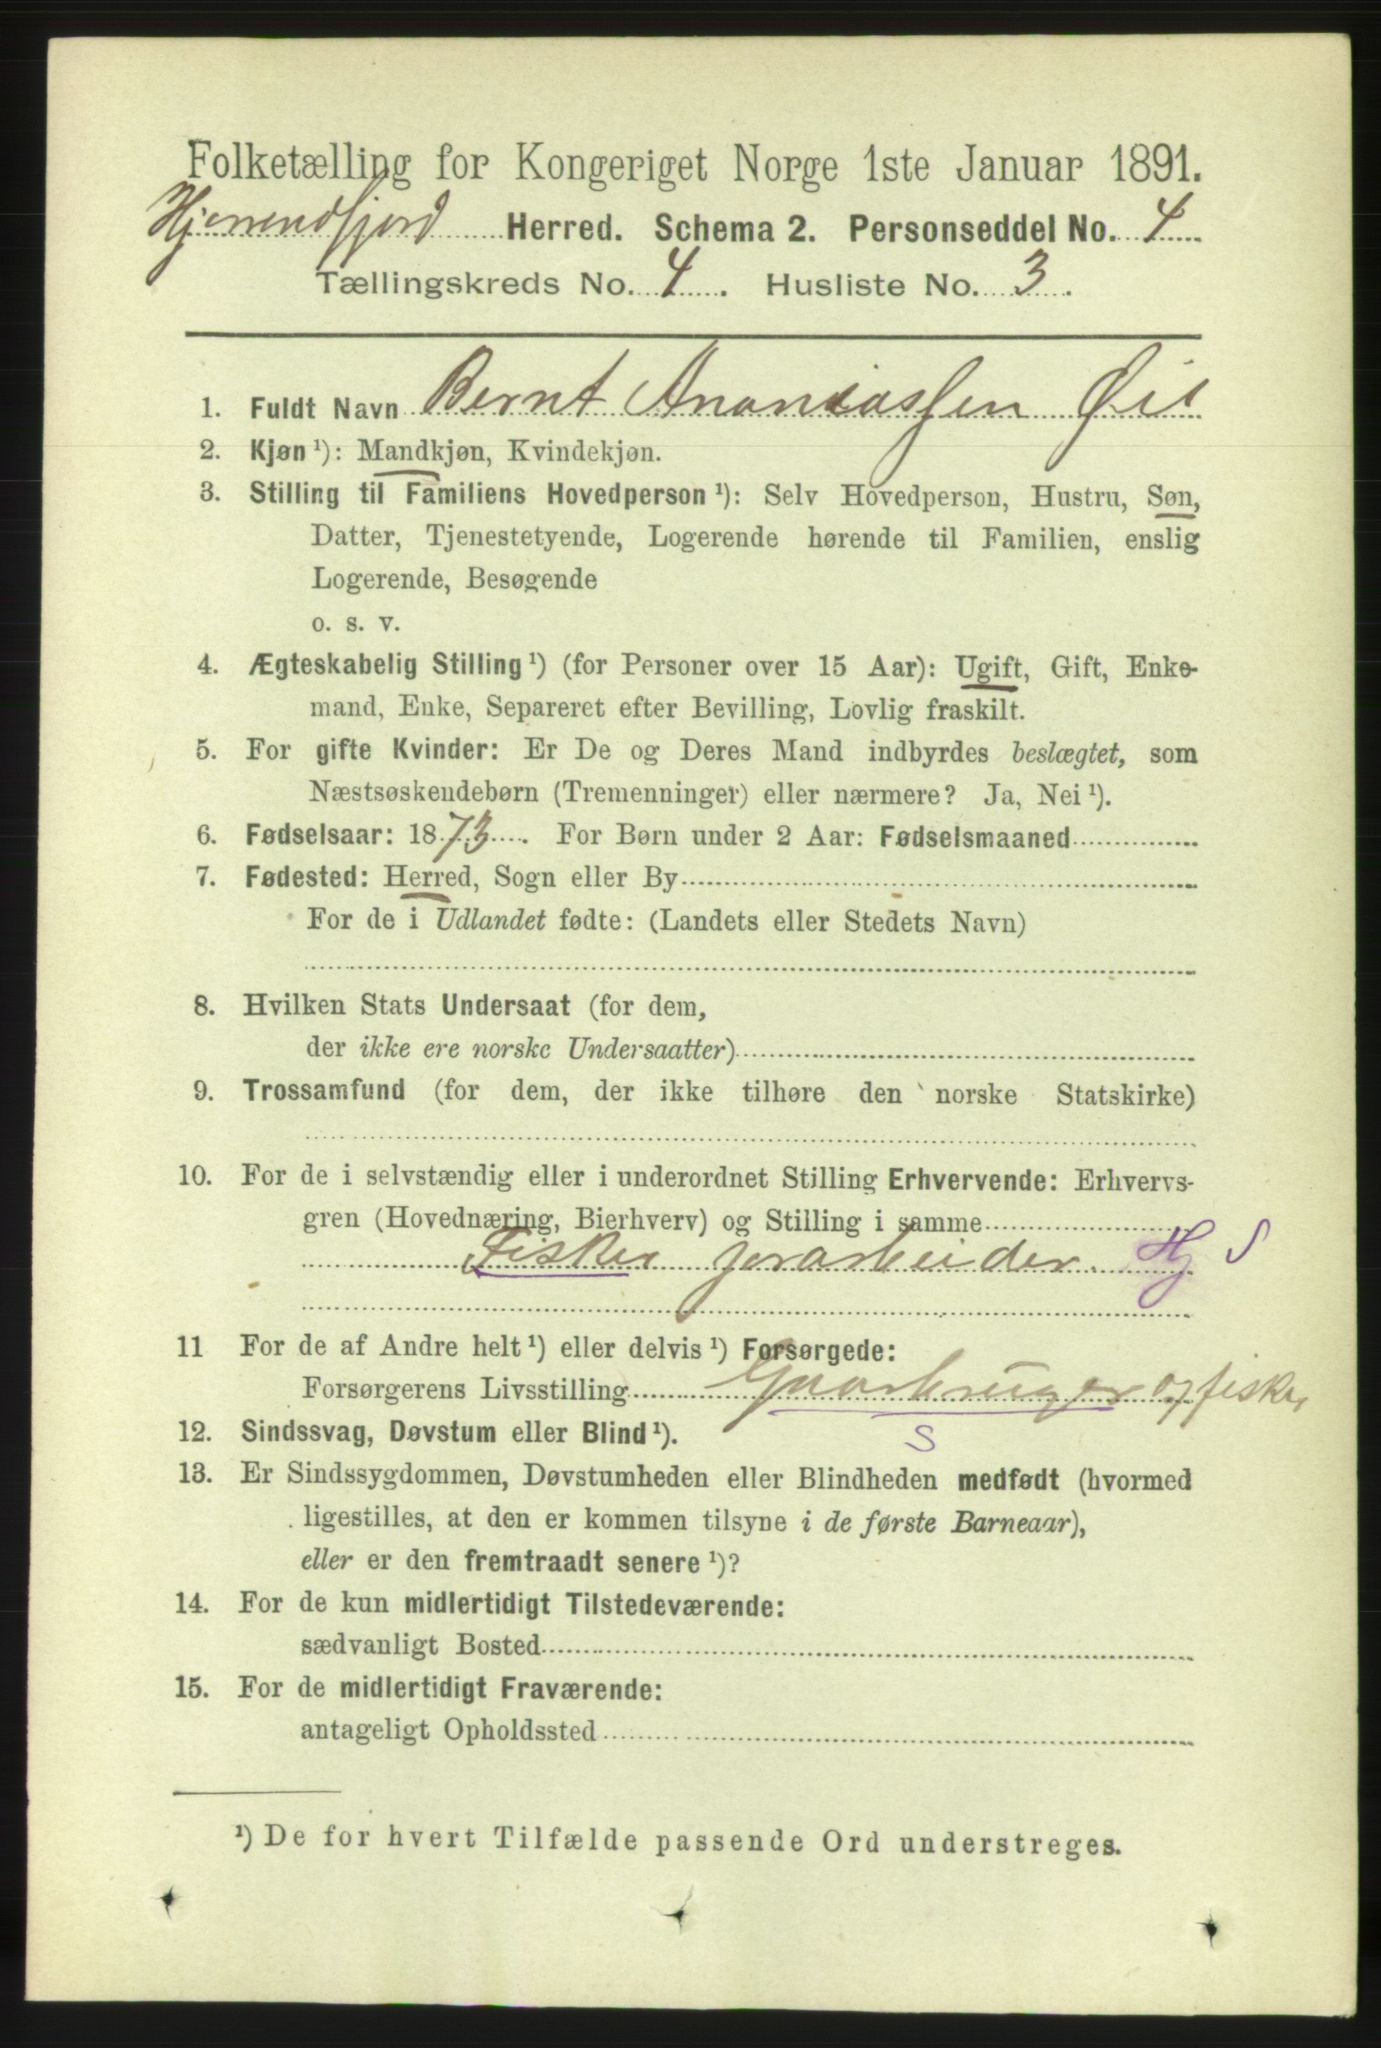 Folketælling for Kongeriget Norge 1ste Januar 1891.
Hjørendfjord Herred. Schema 2. Personseddel No. 4
Tællingskreds No. 4. Husliste No. 3.
1. Fuldt Navn Bernt Ananiassen Øie
2. Kjøn ¹): Mandkjøn, Kvindekjøn.
3. Stilling til Familiens Hovedperson ¹): Selv Hovedperson, Hustru, Søn,
Datter, Tjenestetyende, Logerende hørende til Familien, enslig
Logerende, Besøgende
o. s. v.
4. Ægteskabelig Stilling ¹) (for Personer over 15 Aar): Ugift, Gift, Enke-
mand, Enke, Separeret efter Bevilling, Lovlig fraskilt.
5. For gifte Kvinder: Er De og Deres Mand indbyrdes beslægtet, som
Næstsøskendebørn (Tremenninger) eller nærmere? Ja, Nei ¹).
6. Fødselsaar: 1873. For Børn under 2 Aar: Fødselsmaaned
7. Fødested: Herred, Sogn eller By
For de i Udlandet fødte: (Landets eller Stedets Navn)
8. Hvilken Stats Undersaat (for dem,
der ikke ere norske Undersaatter)
9. Trossamfund (for dem, der ikke tilhøre den norske Statskirke)
10. For de i selvstændig eller i underordnet Stilling Erhvervende: Erhvervs-
gren (Hovednæring, Bierhverv) og Stilling i samme
Fisker jorarbeider. Hj S
11 For de af Andre helt ¹) eller delvis ¹) Forsørgede:
Forsørgerens Livsstilling Gaarbruger og fisker
S
12. Sindssvag, Døvstum eller Blind ¹).
13. Er Sindssygdommen, Døvstumheden eller Blindheden medfødt (hvormed
ligestilles, at den er kommen tilsyne i de første Barneaar),
eller er den fremtraadt senere ¹)?
14. For de kun midlertidigt Tilstedeværende:
sædvanligt Bosted
15. For de midlertidigt Fraværende:
antageligt Opholdssted
¹) De for hvert Tilfælde passende Ord understreges.